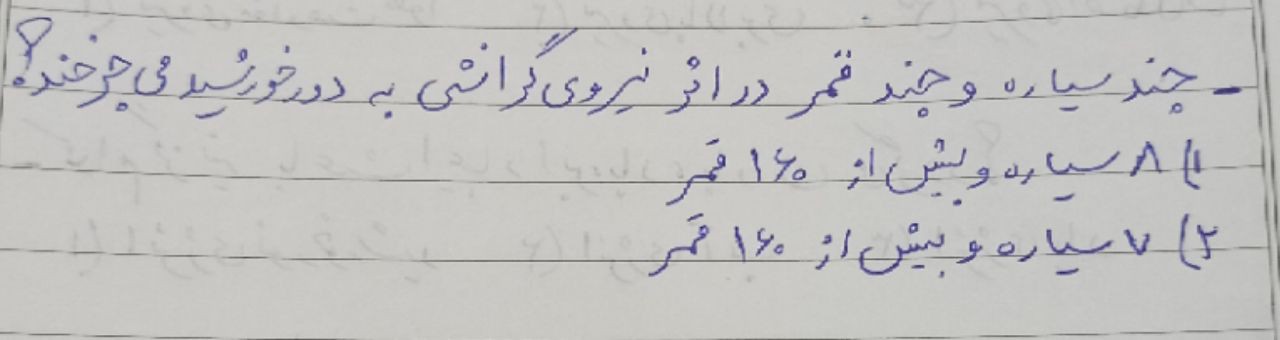 - چند سیاره و چند قمر در اثر نیروی گرانشی به دور خورشید می چرخند؟
۱) ۸ سیاره و بیش از ۱۶۰ قمر
۲) ۷ سیاره و بیش از ۱۶۰ قمر